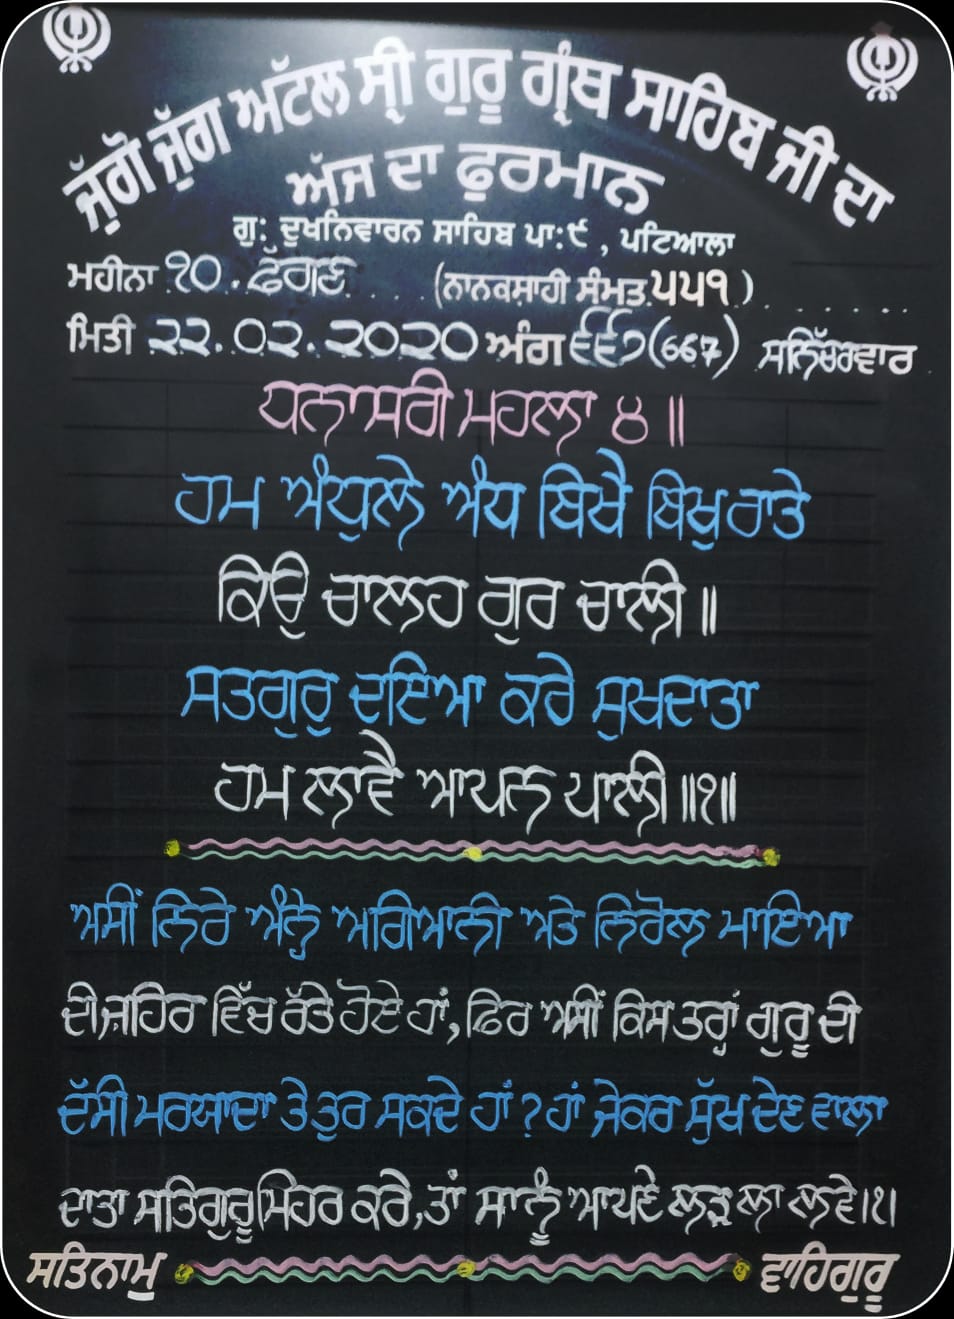 ਜੁੱਗੋ ਜੁੱਗ ਅਟੱਲ ਸ੍ਰੀ ਗੁਰੂ ਗ੍ਰੰਥ ਸਾਹਿਬ ਜੀ ਦਾ
ਅੱਜ ਦਾ ਫੁਰਮਾਨ
ਗੁ: ਦੁਖਨਿਵਾਰਨ ਸਾਹਿਬ ਪਾ:੯ , ਪਟਿਆਲਾ
ਮਹੀਨਾ ੧੦. ਫੱਗਣ (ਨਾਨਕਸ਼ਾਹੀ ਸੰਮਤ ੫੫੧)
ਮਿਤੀ 22.02.2020 ਅੰਗ ੬੬੭(667) ਸਨਿੱਚਰਵਾਰ
ਧਨਾਸਰੀ ਮਹਲਾ ੪ ॥
ਹਮ ਅੰਧੁਲੇ ਅੰਧ ਬਿਖੈ ਬਿਖੁ ਰਾਤੇ
ਕਿਉ ਚਾਲਹ ਗੁਰ ਚਾਲੀ ॥
ਸਤਗੁਰੁ ਦਇਆ ਕਰੇ ਸੁਖਦਾਤਾ
ਹਮ ਲਾਵੈ ਆਪਨ ਪਾਲੀ ॥੧॥
ਅਸੀਂ ਨਿਰੇ ਅੰਨ੍ਹੇ ਅਗਿਆਨੀ ਅਤੇ ਨਿਰੋਲ ਮਾਇਆ
ਦੀ ਜ਼ਹਿਰ ਵਿੱਚ ਰੱਤੇ ਹੋਏ ਹਾਂ, ਫਿਰ ਅਸੀਂ ਕਿਸ ਤਰ੍ਹਾਂ ਗੁਰੂ ਦੀ
ਦੱਸੀ ਮਰਯਾਦਾ ਤੇ ਤੁਰ ਸਕਦੇ ਹਾਂ ? ਹਾਂ ਜੇਕਰ ਸੁੱਖ ਦੇਣ ਵਾਲਾ
ਦਾਤਾ ਸਤਿਗੁਰੂ ਮਿਹਰ ਕਰੇ, ਤਾਂ ਸਾਨੂੰ ਆਪਣੇ ਲੜ ਲਾ ਲਵੇ।੧।
ਸਤਿਨਾਮੁ ਵਾਹਿਗੁਰੂ